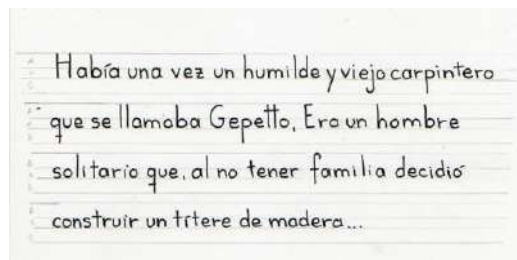 Había una vez un humilde y viejo carpintero
que se llamaba Gepetto. Era un hombre
solitario que, al no tener familia decidió
construir un títere de madera...